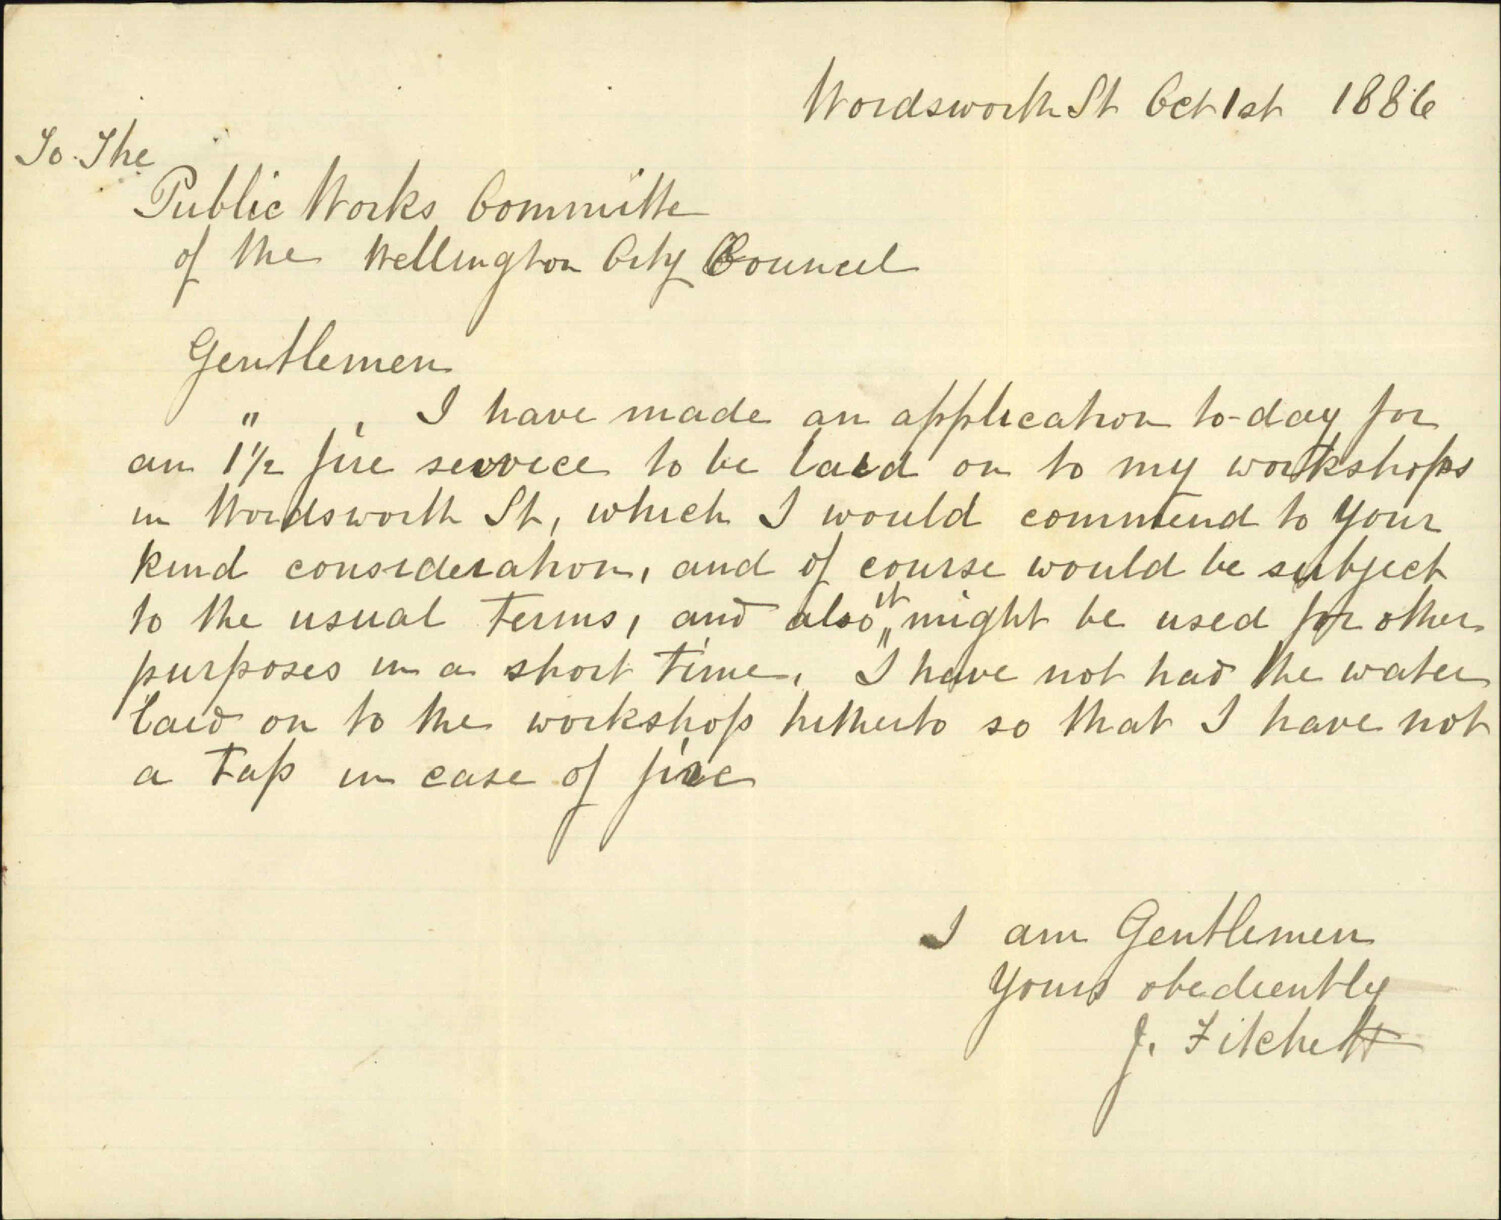 Wordsworth St Oct 1st 1886
To The
Public Works Committe
of the Wellington City Council
Gentlemen
" , I have made an application to-day for
an 1½ fire service to be laid on to my workshops
in Wordsworth St, which I would commend to your
kind consideration, and of course would be subject
to the usual terms, and also it might be used for other
purposes in a short time. I have not had the water
laid on to the workshop hitherto so that I have not
a tap in case of fire
I am Gentlemen
Yours obediently
J. Fitchett